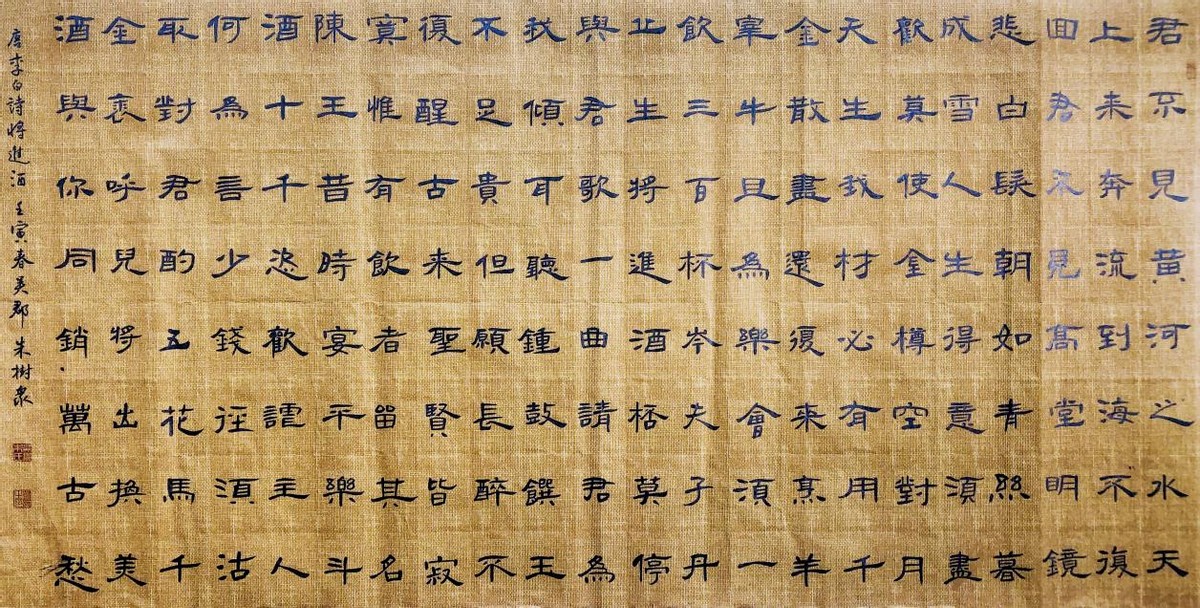 君不見黄河之水天
上来奔流到海不復
回君不見高堂明鏡
悲白髮朝如青絲暮
成雪人生得意須盡
歡莫使金樽空對月
天生我材必有用千
金散盡還復来烹羊
宰牛且為樂會須一
飲三百杯岑夫子丹
丘生將進酒桮莫停
與君歌一曲請君為
我傾耳聽鍾鼓饌玉
不足貴但願長醉不
復醒古来聖賢皆寂
寞惟有飲者留其名
陳王昔時宴平樂斗
酒十千恣歡謔主人
何為言少錢徑須沽
取對君酌五花馬千
金裘呼兒將出換美
酒與你同銷萬古愁
唐李白詩將進酒 壬寅春吳郡 朱樹衆